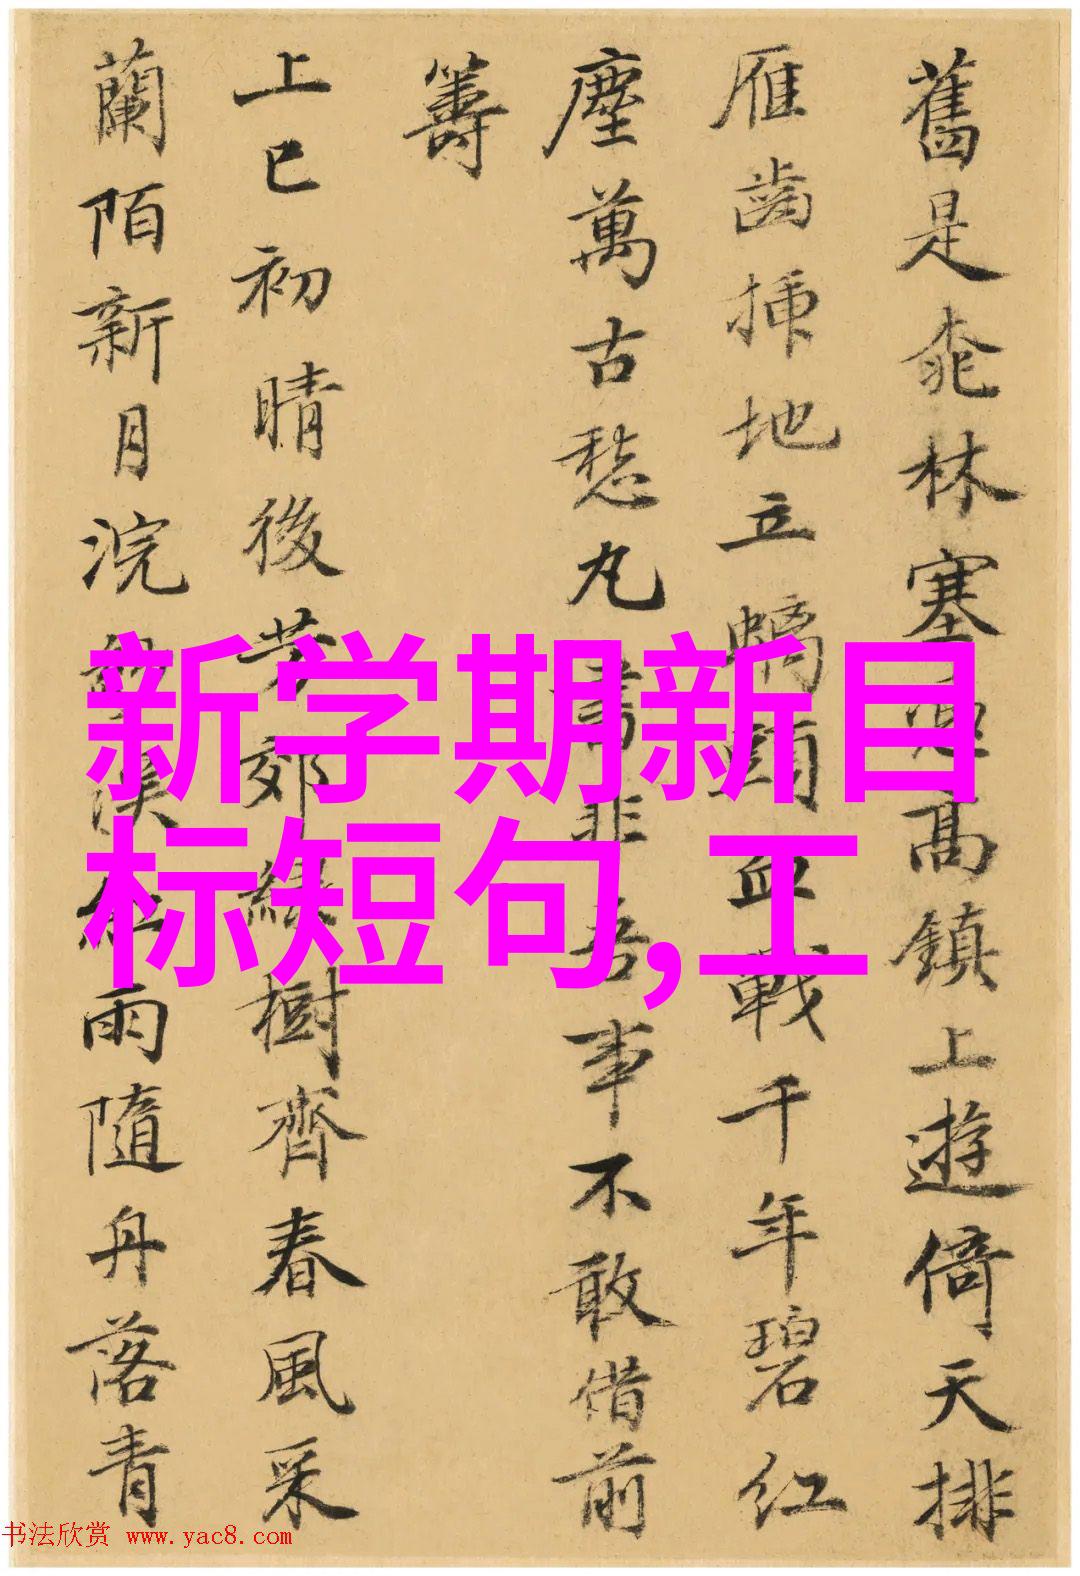 舊是桃林塞高鎮上遊倚天排
雁齒揷地立螭頭血戰千年碧紅
塵萬古愁丸書非吾事不敢借前
籌
上巳初晴後芳郊緑樹齊春風采
蘭陌新月浣紗溪紅雨隨舟落青
新学期新目
标短句,工
书法欣赏 www.yac8.com